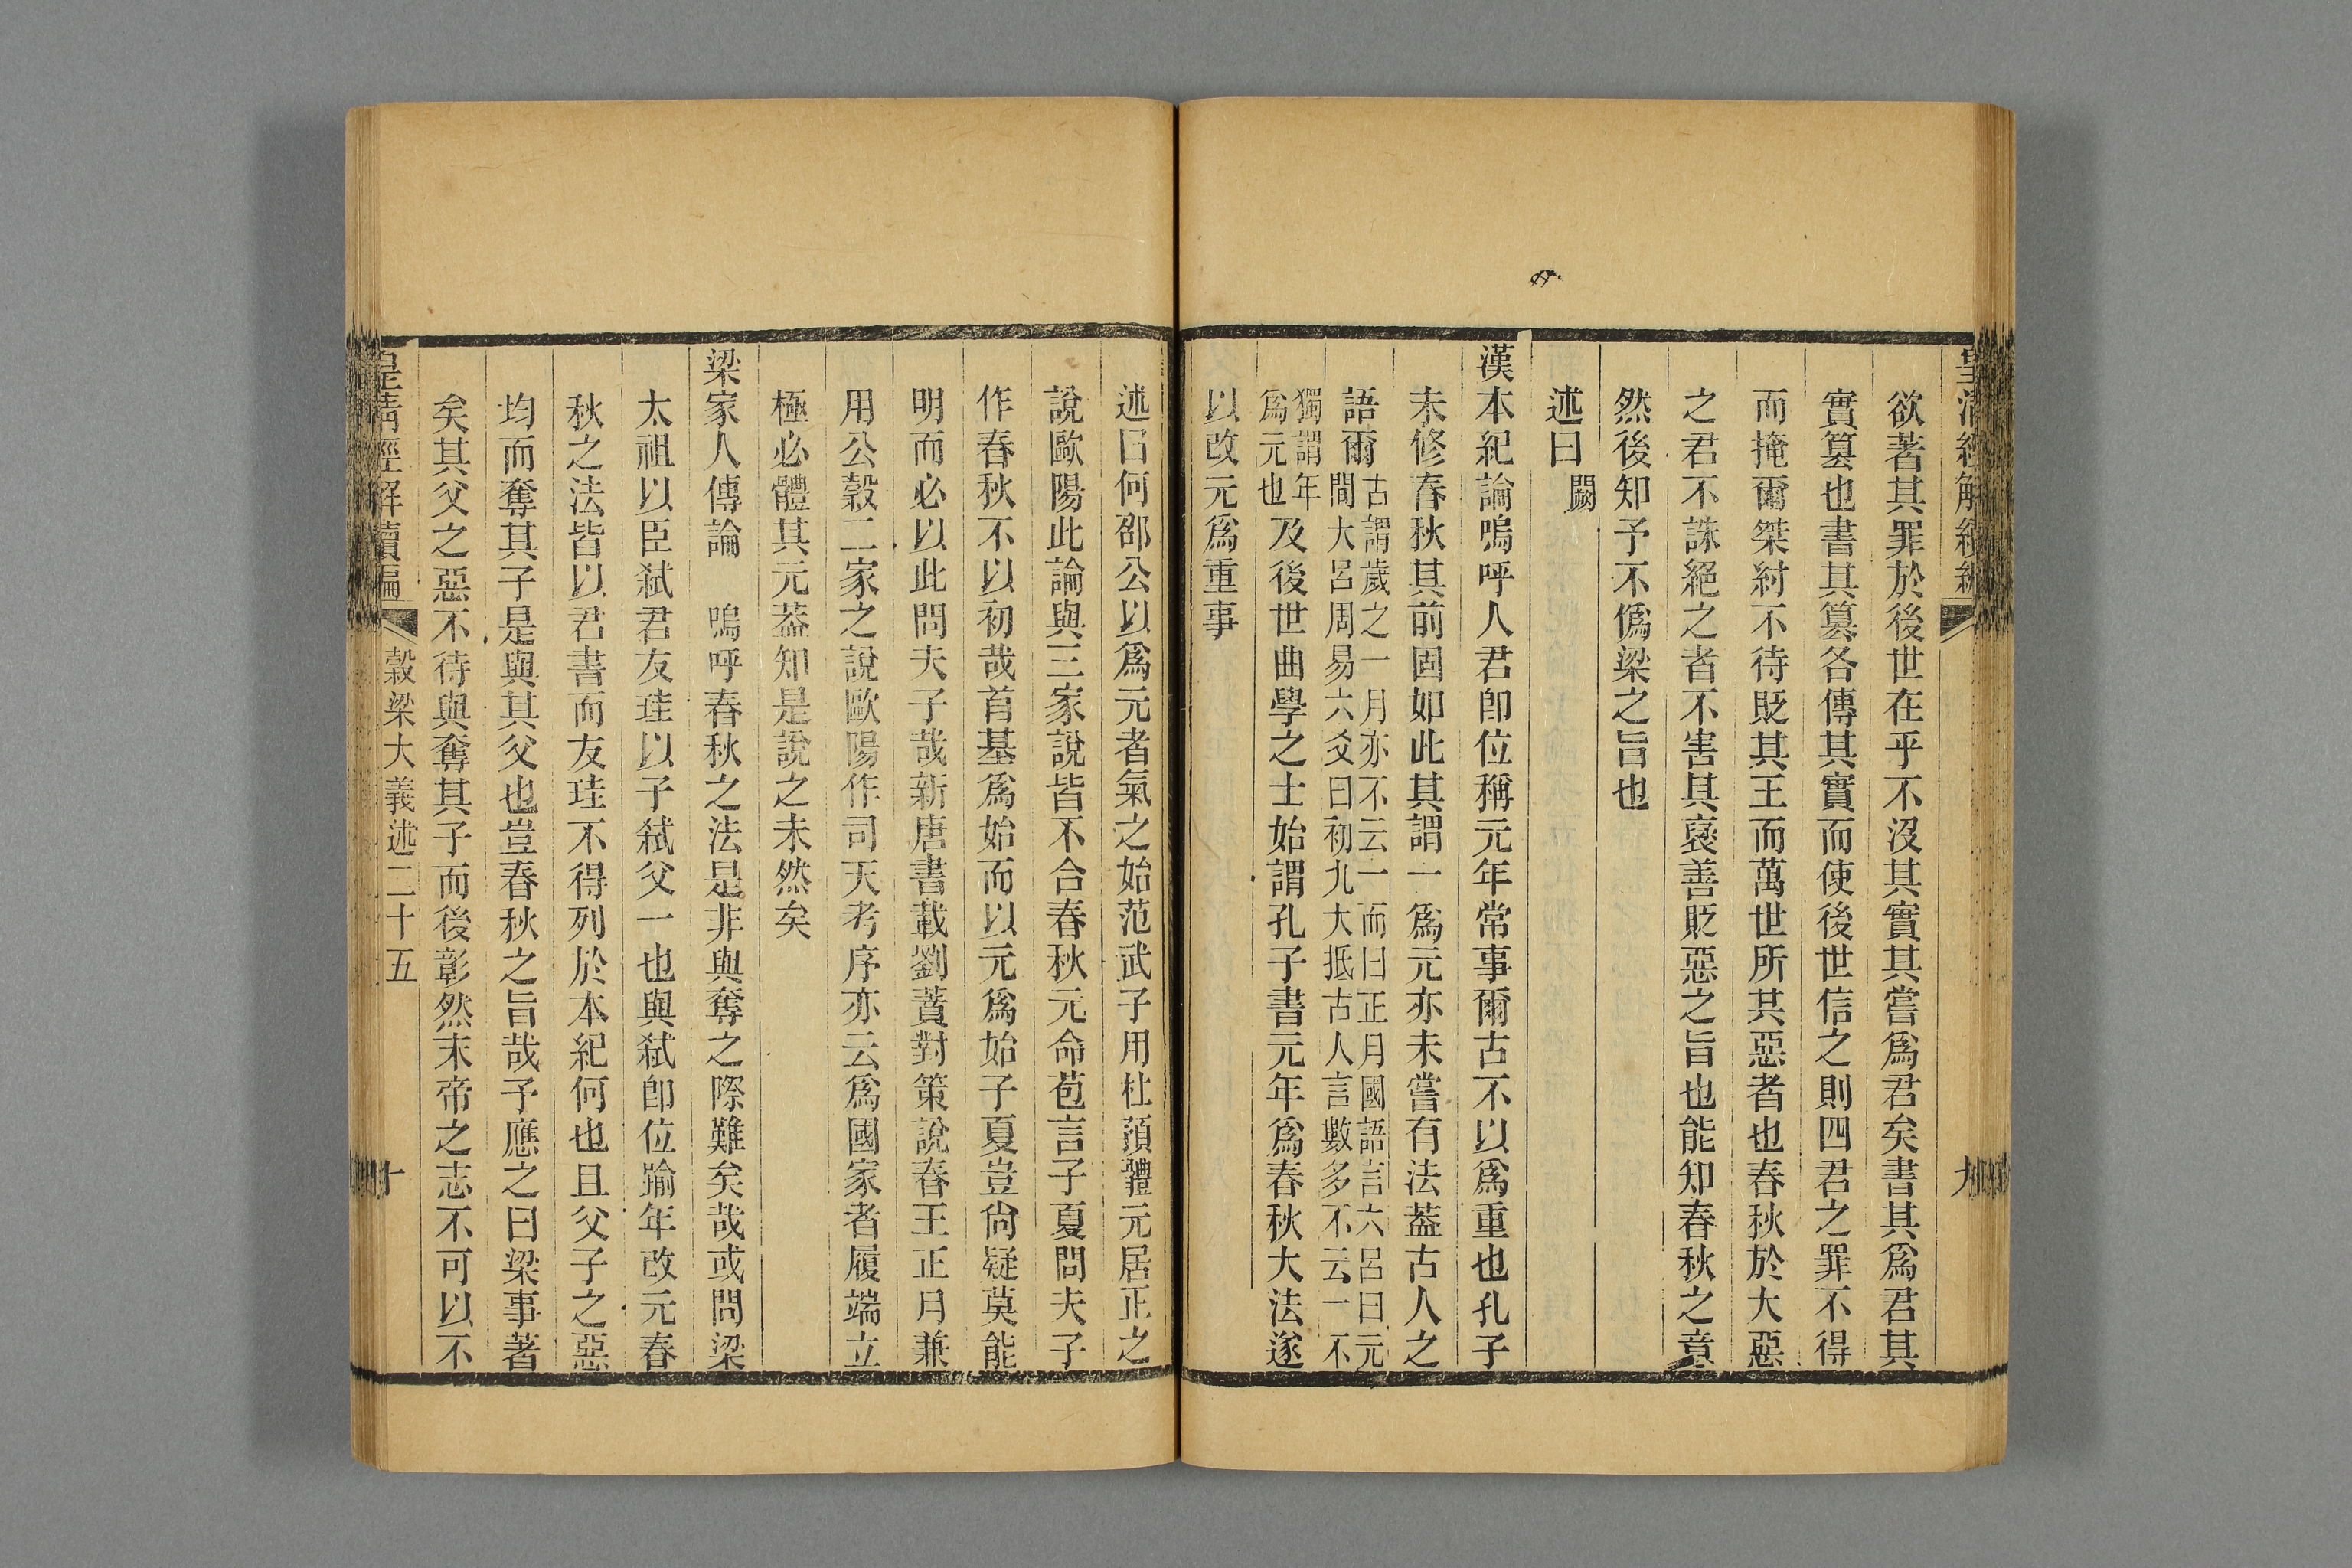 皇清經解續編
九
欲著其罪於後世在乎不沒其實其嘗爲君矣書其爲君其
實篡也書其篡各傳其實而使後世信之則四君之罪不得
而掩爾桀紂不待貶其王而萬世所其惡者也春秋於大惡
之君不誅絕之者不害其襃善貶惡之旨也能知春秋之意
然後知予不僞梁之旨也
述曰闕
漢本紀論嗚呼人君卽位稱元年常事爾古不以爲重也孔子
未修春秋其前固如此其謂一爲元亦未嘗有法葢古人之
語爾古謂歲之一月亦不云一而曰正月國語言六呂曰元
間大呂周易六爻曰初九大抵古人言數多不云一不
獨謂年
爲元也及後世曲學之士始謂孔子書元年爲春秋大法遂
以改元爲重事
述曰何邵公以爲元者氣之始范武子用杜預體元居正之
說歐陽此論與三家說皆不合春秋元命苞言子夏問夫子
作春秋不以初哉首基爲始而以元爲始子夏豈尙疑莫能
明而必以此問夫子哉新唐書載劉蕡對策說春王正月兼
用公穀二家之說歐陽作司天考序亦云爲國家者履端立
極必體其元葢知是說之未然矣
梁家人傳論　嗚呼春秋之法是非與奪之際難矣哉或問梁
太祖以臣弑君友珪以子弑父一也與弑卽位踰年改元春
秋之法皆以君書而友珪不得列於本紀何也且父子之惡
均而奪其子是與其父也豈春秋之旨哉予應之曰梁事著
矣其父之惡不待與奪其子而後彰然末帝之志不可以不
皇清經解續編
穀梁大義述二十五
十